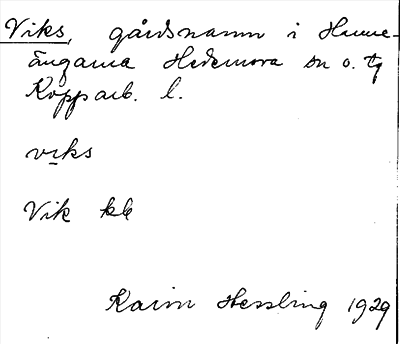 Viks, gårdsnamn i Hume-
ängarna Hedemora sn o. tg
Kopparb. l.
vıks
Vik kb
Karin Hessling 1929